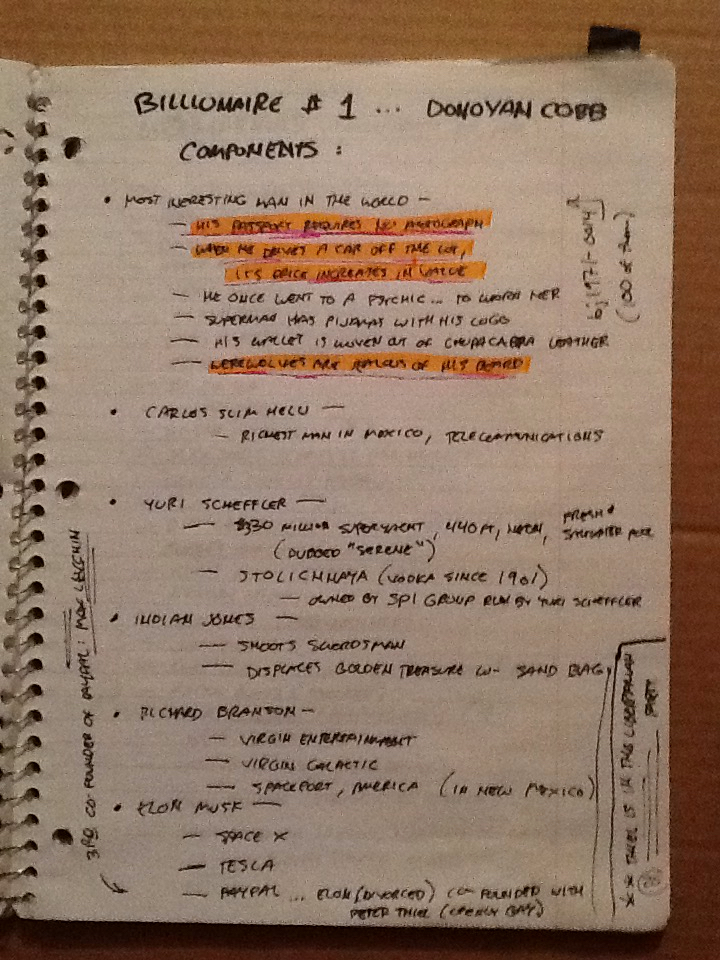 BILLIONAIRE # 1 ... DONOVAN COBB
COMPONENTS :
• MOST INERESTING MAN IN THE WORLD —
— HIS PASSPORT REQUIRES NO AUTOGRAPH
— WHEN HE DRIVES A CAR OFF THE LOT,
ITS PRICE INCREASES IN VALUE
— HE ONCE WENT TO A PSYCHIC... TO WARN HER
— SUPERMAN HAS PIJAMAS WITH HIS LOGO
— HIS WALLET IS WOVEN OUT OF CHUPACABRA LEATHER
— WEREWOLVES ARE JEALOUS OF HIS BEARD
• CARLOS SLIM HELU —
— RICHEST MAN IN MEXICO, TELECOMMUNICATIONS
• YURI SCHEFFLER —
— $330 MILLION SUPERYACHT, 440FT,
FRESH &
SALTWATER POOL
(DUBBED "SERENE")
— STOLICHNAYA (VODKA SINCE 1901)
— OWNED BY SPI GROUP RUN BY YURI SCHEFFLER
• INDIAN JONES —
— SHOOTS SWORDSMAN
— DISPLACES GOLDEN TREASURE W- SAND BAG
• RICHARD BRANSON —
— VIRGIN ENTERTAINMENT
— VIRGIN GALACTIC
— SPACEPORT, AMERICA (IN NEW MEXICO)
• ELON MUSK —
— SPACE X
— TESLA
— PAYPAL ... ELON (DIVORCED) CO-FOUNDED WITH
PETER THIEL (OPENLY GAY)
3RD CO-FOUNDER OF PAYPAL: MAX LEVCHIN
(100 of them)
** THIEL IS IN THE LIBERTARIAN
PARTY